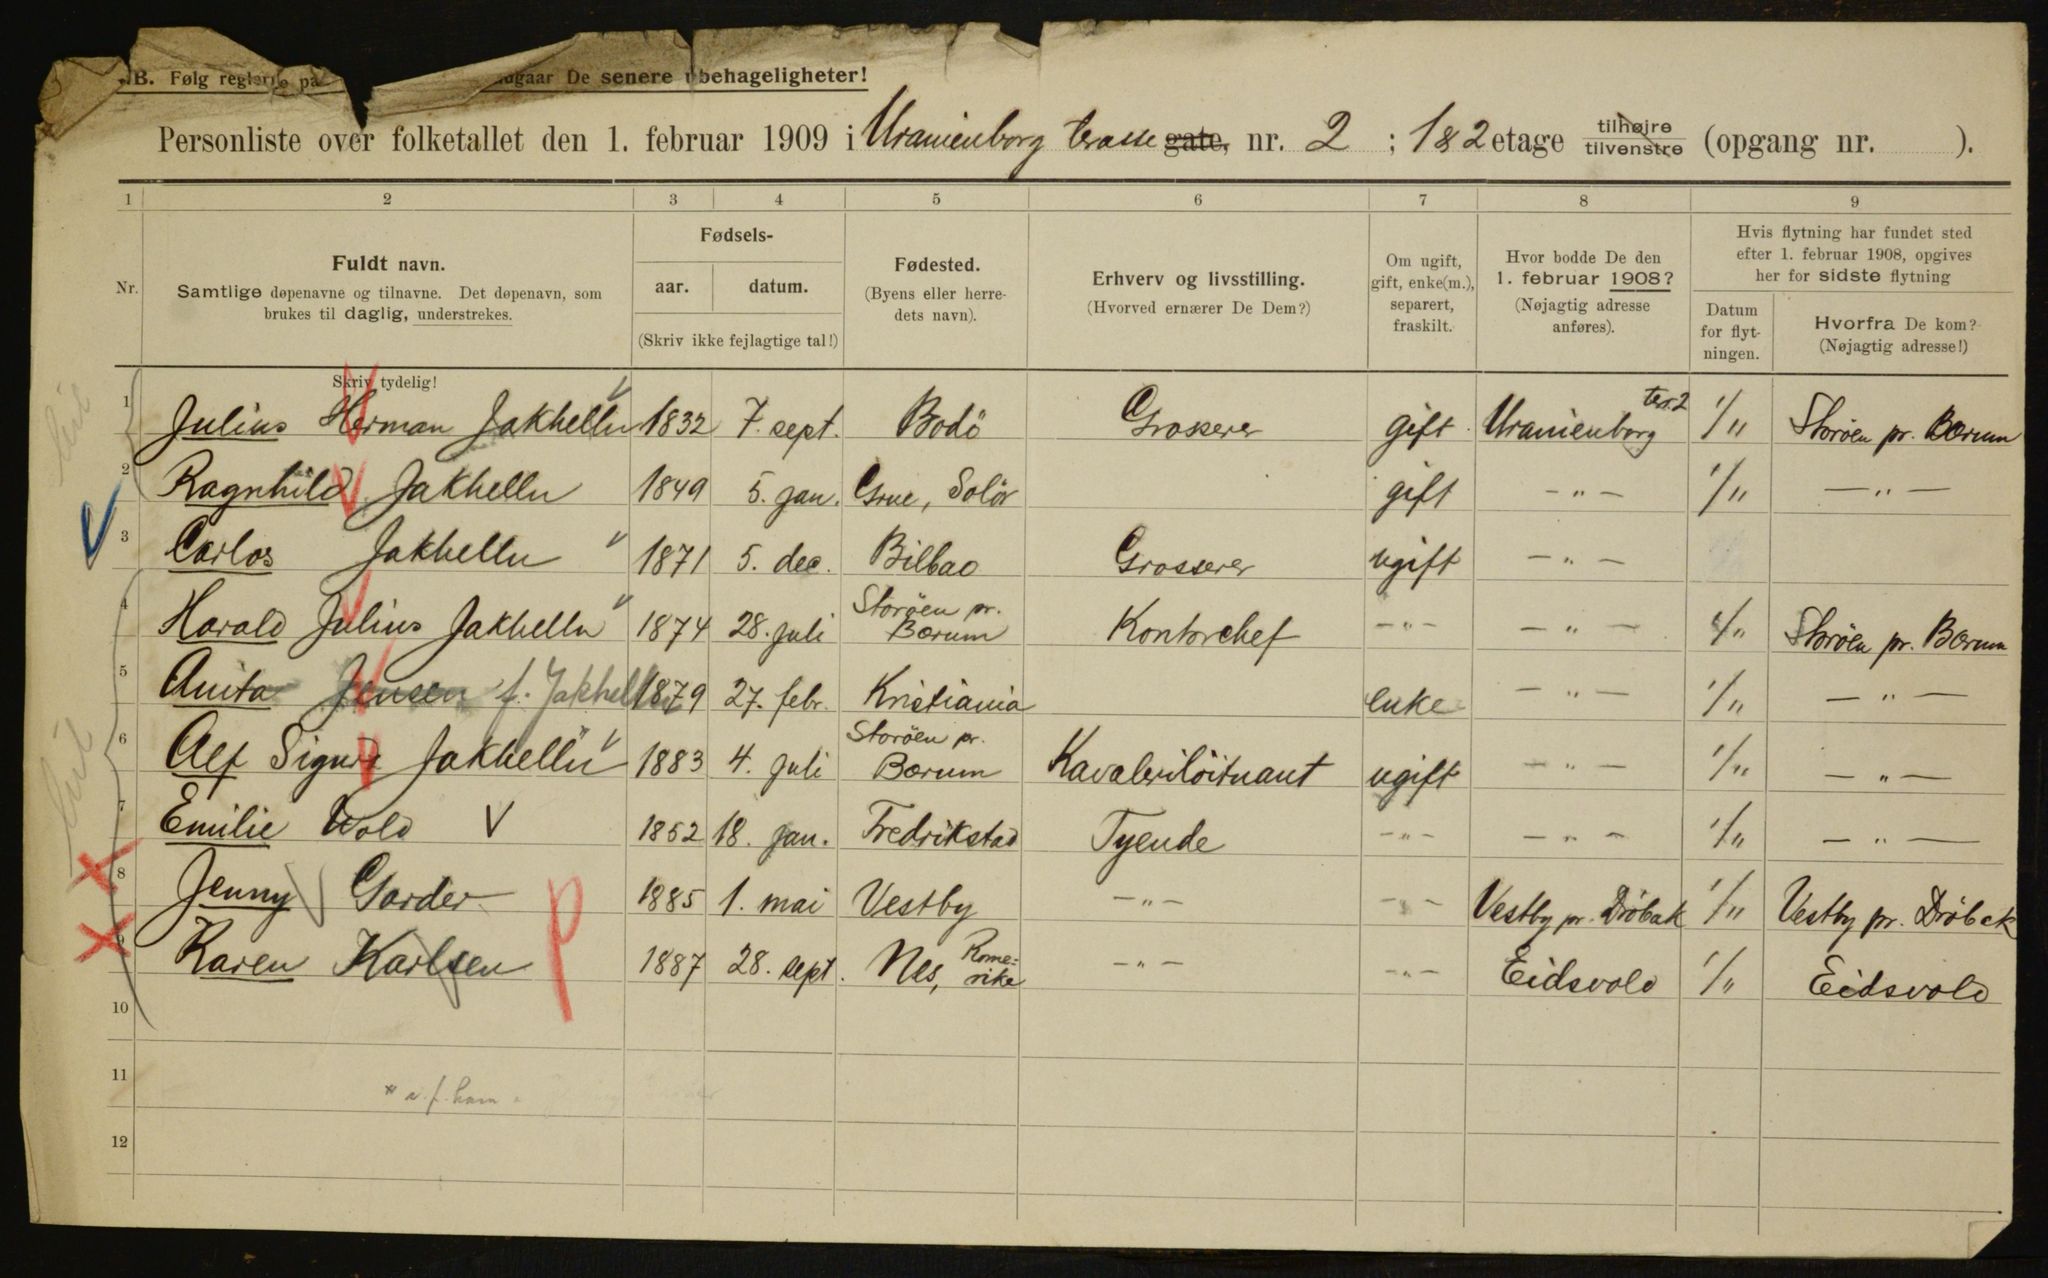 B. Følg reglerne på ... De senere ubehageligheter!
Personliste over folketallet den 1. februar 1909 i Uranienborg terasse gate, nr. 2 ; 1&2 etage tilhøjre tilvenstre (opgang nr. ).
1 2 3 4 5 6 7 8 9
Nr.
Fuldt navn.
Samtlige døpenavne og tilnavne. Det døpenavn, som
brukes til daglig, understrekes.
Skriv tydelig!
Fødsels-
aar. datum.
(Skriv ikke fejlagtige tal!)
Fødested.
(Byens eller herre-
dets navn).
Erhverv og livsstilling.
(Hvorved ernærer De Dem?)
Om ugift,
gift, enke(m.),
separert,
fraskilt.
Hvor bodde De den
1. februar 1908?
(Nøjagtig adresse
anføres).
Hvis flytning har fundet sted
efter 1. februar 1908, opgives
her for sidste flytning
Datum
for flyt-
ningen.
Hvorfra De kom?
(Nøjagtig adresse!)
1 Julius Herman Jakhelln 1832 7. sept. Bodö Grosserer gift Uranienborg ter. 2 1/11 Storöen pr. Bærum
2 Ragnhild Jakhelln 1849 5. jan. Grue, Solör gift — " — 1/11 — " —
3 Carlos Jakhelln 1871 5. dec. Bilbao Grosserer ugift — " —
4 Harald Julius Jakhelln 1874 28. juli Storöen pr. Bærum Kontorchef — " — — " — 1/11 Storöen pr. Bærum
5 Anita Jensen f. Jakhelln 1879 27. febr. Kristiania enke — " — 1/11 — " —
6 Alf Sigurd Jakhelln 1883 4. juli Storöen pr. Bærum Kavaleriløitnant ugift — " — 1/11 — " —
7 Emilie Wold 1852 18. jan. Fredrikstad Tyende — " — — " — 1/11 — " —
8 Jenny Garder 1885 1. mai Vestby — " — — " — Vestby pr. Dröbak 1/11 Vestby pr. Dröbak
9 Karen Karlsen p 1887 28. sept. Nes, Romerike — " — — " — Eidsvold 1/11 Eidsvold
10
11
12